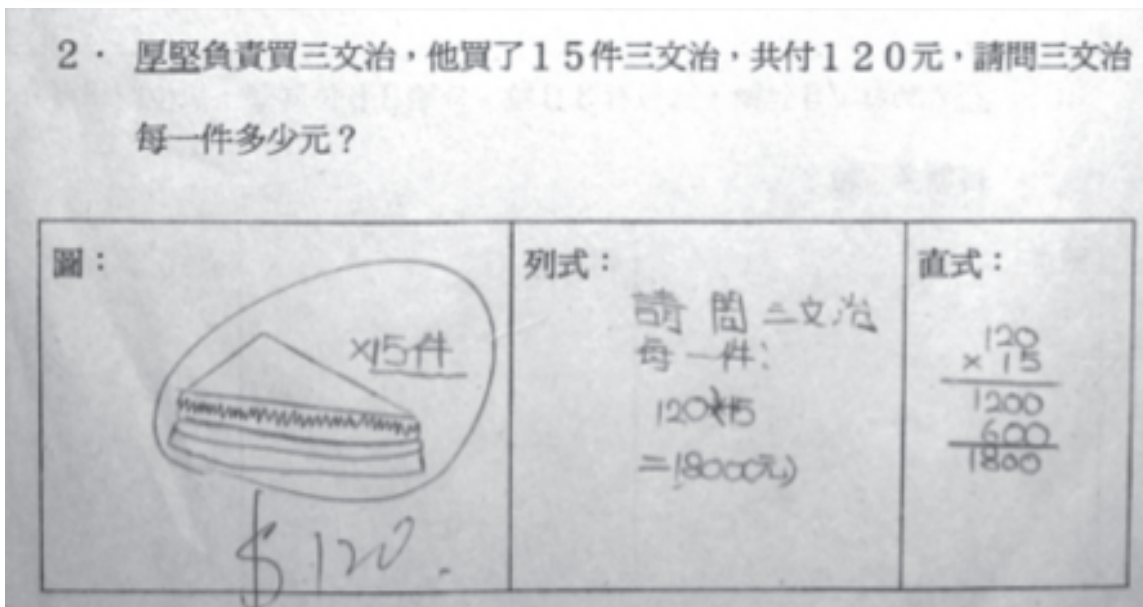 2． 厚堅負責買三文治，他買了１５件三文治，共付１２０元，請問三文治
每一件多少元？
圖：
×15件
$120.
列式：
請問三文治
每一件：
120×15
=1800(元)
直式：
120
× 15
1200
600
1800